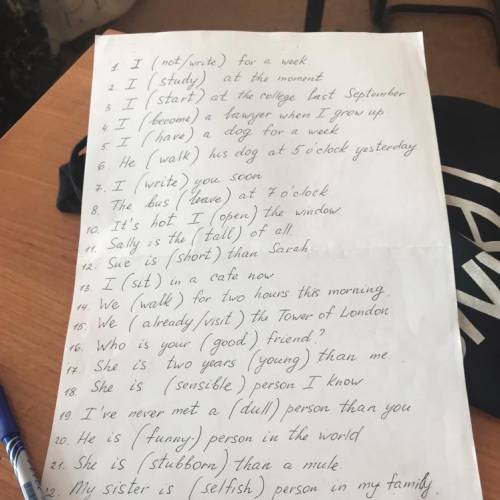 1. I (not/write) for a week
2. I (study) at the moment
3 I (start) at the college last September
4. I (become) a lawyer when I grow up
5. I (have) a dog for a week
6. He (walk) his dog at 5 o'clock yesterday
7. I (write) you soon
8. The bus (leave) at 7 o'clock
10. It's hot. I (open) the window
11. Sally is the (tall) of all.
12. Sue is (short) than Sarah.
13. I (sit) in a cafe now
14. We (walk) for two hours this morning
15. We (already/visit) the Tower of London
16. Who is your (good) friend?
17. She is two years (young) than me.
18. She is (sensible) person I know
19 I've never met a (dull) person than you
20. He is (funny) person in the world
21. She is (stubborn) than a mule.
22. My sister is (selfish) person in my family.